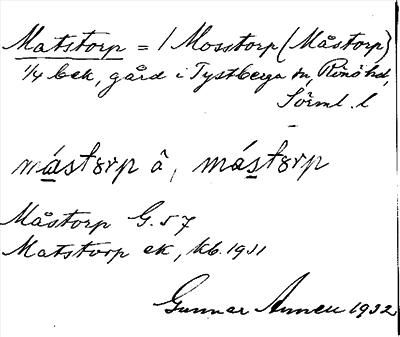 Matstorp = / Mosstorp (Måstorp)
1/4 bek, gård i Tystberga sn, Rönö hd,
Sörml. l
mástorp â, mástorp
Måstorp G. 57
Matstorp ek, kb. 1931
Gunnar Annell 1932